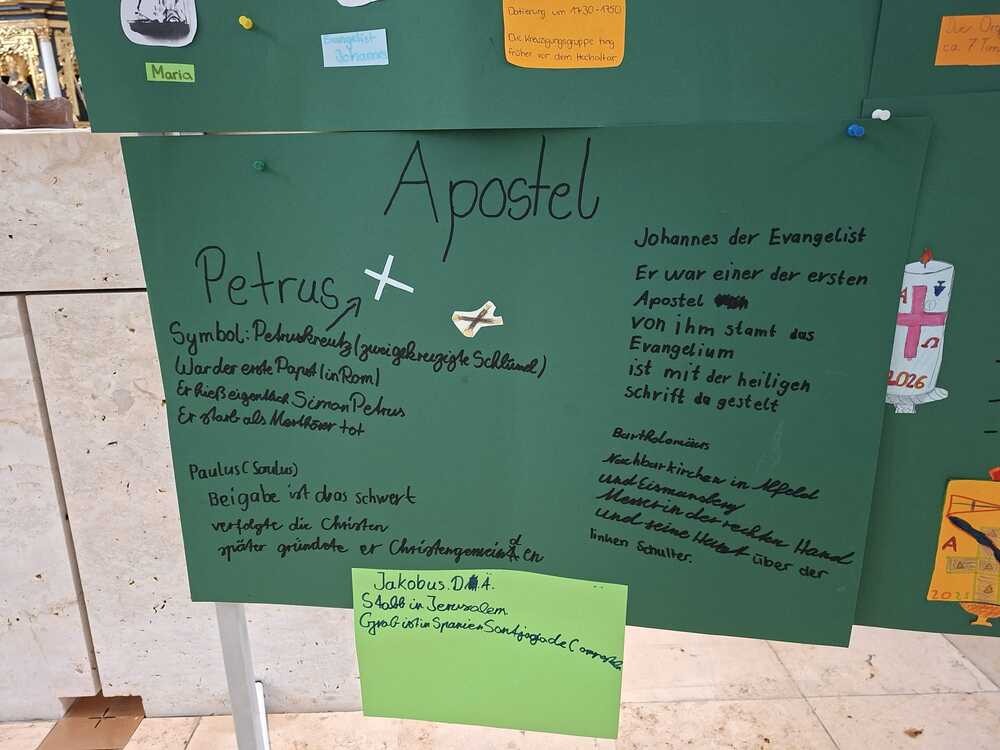 Maria
Evangelist
Johannes
Datierung um 1730-1750
Die Kreuzigungsgruppe hing
früher vor dem Hochaltar.
Der Org
ca. 7 Tim
Apostel
Petrus
Symbol: Petruskreutz (zwei gekreuzigte Schlüssel)
War der erste Papst (in Rom)
Er hieß eigentlich Simon Petrus
Er starb als Märthörer tot
Paulus (Saulus)
Beigabe ist das schwert
verfolgte die Christen
später gründete er
Johannes der Evangelist
Er war einer der ersten
Apostel
von ihm stamt das
Evangelium
ist mit der heiligen
schrift da gestelt
Bartholomäus
Nachbarkirchen in Alfeld
und Eismansberg
Messer in der rechten Hand
und seine Haut über der
linken Schulter.
Jakobus. D. Ä.
Starb in Jerusalem
Grab ist in Spanien Santjago de Compostela
A
Ω
2026
A
2025